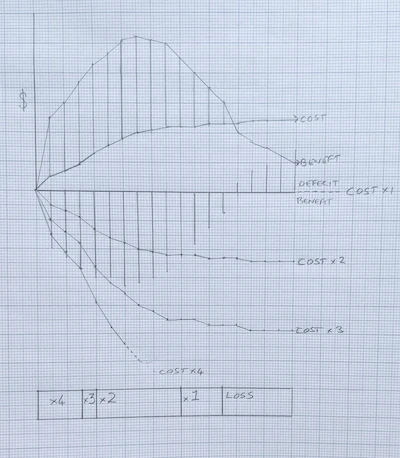 $
COST
BENEFIT
DEFECIT
COST x1
BENEFIT
COST x2
COST x3
COST x4
x4 x3 x2 x1 LOSS